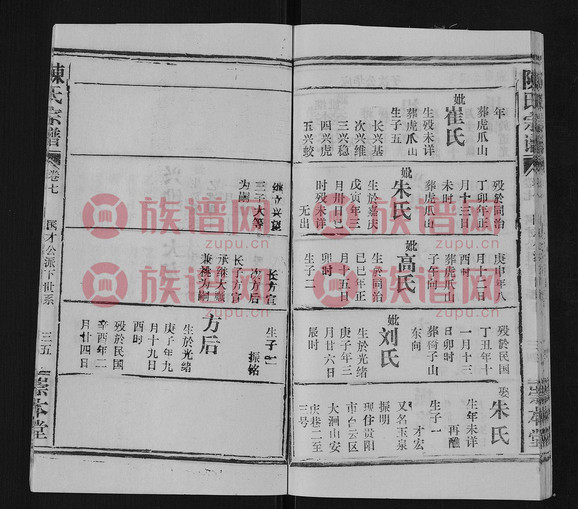 陳氏宗譜
年
葬虎爪山
妣崔氏
生殁未详
葬虎爪山
生子五
长兴基
次兴维
三兴稳
四兴虎
五兴蛟
殁於同治
丁卯年正
月十三日
未时
葬虎爪山
妣朱氏
生於嘉庆
戊寅年三
月卅日口
时殁未详
无出
庚申年八
月十二日
酉时
葬虎爪山
子午向
妣高氏
生於同治
已巳年正
月十五日
卯时
生子二
殁於民国
丁丑年十
一月十三
日卯时
葬椅子山
东向
妣刘氏
生於光绪
庚子年三
月廿六日
辰时
娶朱氏
生年未详
再醮
生子一
才宏
振明
又名玉泉
现住贵阳
市白云区
大洞山安
庆巷二至
三号
继立兴望
三子大等
为嗣
长子方宣
次方后
长子方宣
承继大雁
兼祧为嗣
生子一
振铭
方后
生於光绪
庚子年九
月十九日
酉时
殁於民国
辛酉年二
月廿四日
陳氏宗譜
卷七
国才公派下世系
三五
崇本堂
族谱网
zupu.cn